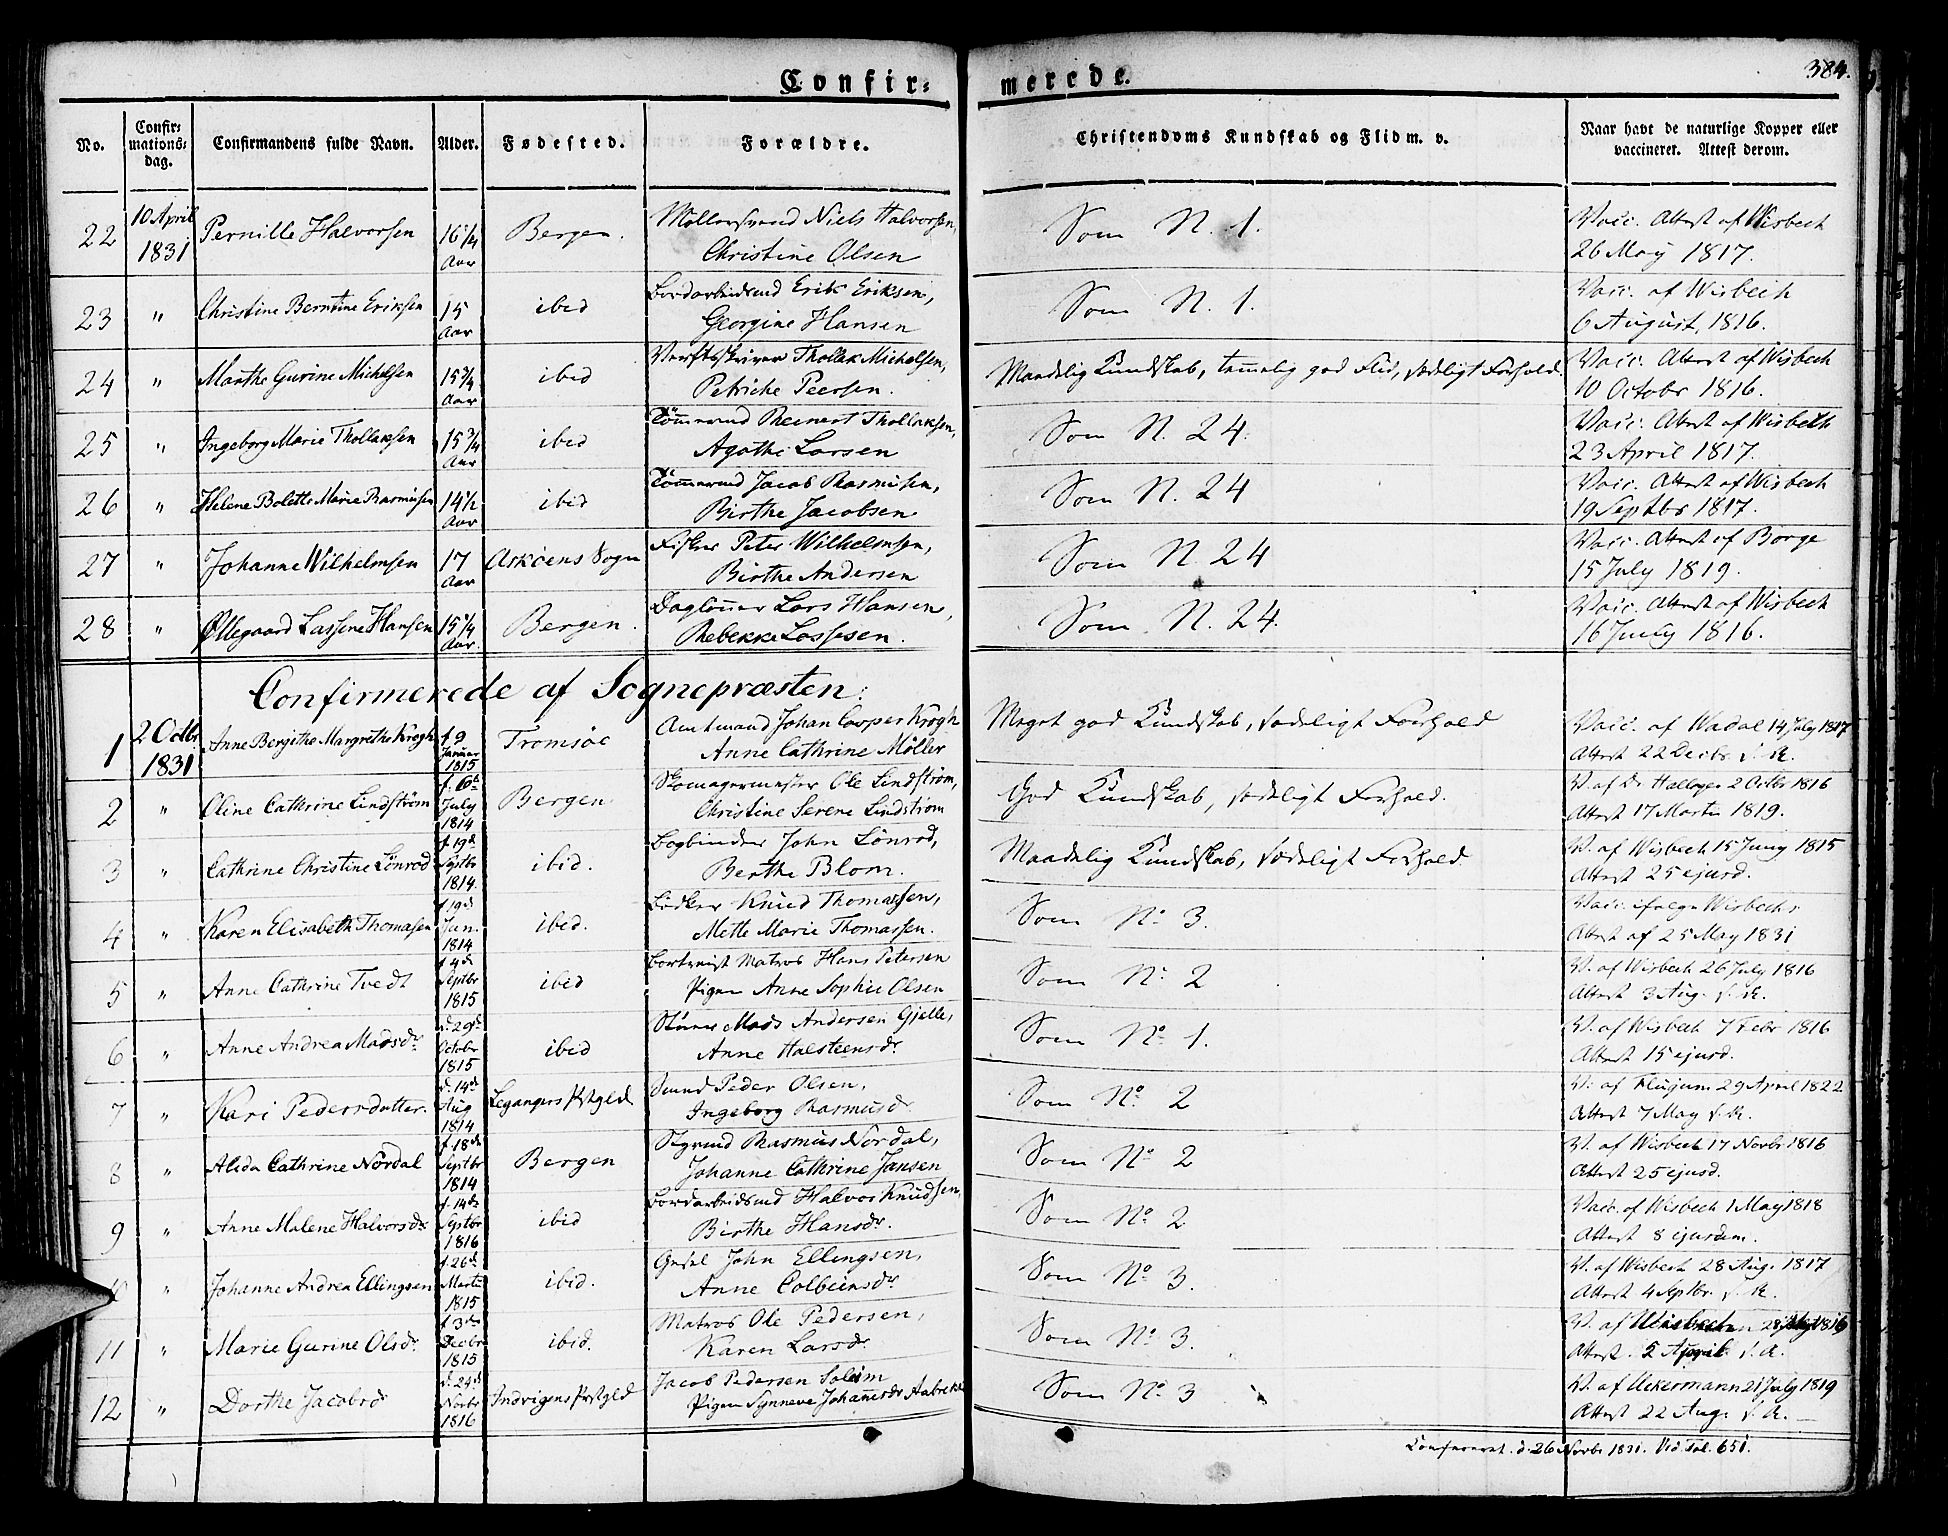 Confir= merede. 384.
No. Confir= mations= dag. Confirmandens fulde Navn. Alder. Fødested. Forældre. Christendoms Kundskab og Flid m. v. Naar havt de naturlige Kopper eller vaccineret. Attest derom.
22 10 April 1831 Pernille Halvorsen 16 1/4 Aar Bergen. Niels Halvorsen, Christine Olsen Som N. 1. Vacc. Attest af Wisbech 26 May 1817.
23 " Christine Berntine Eriksen 15 Aar ibid Bordarbeidsmd Erik Eriksen, Georgine Hansen Som N. 1. Vacc. af Wisbech 6 August 1816.
24 " Marthe Gurine Michelsen 15 3/4 Aar ibid Verftsskriver Thollak Michelsen, Petriche Peersen. Maadelig Kundskab, tammelig god Flid, sædeligt Forhold. Vacc. Attest af Wisbech 10 Octobr 1816.
25 " Ingeborg Marie Thollaksen 15 3/4 Aar ibid Tömmermd Reinert Thollaksen, Agathe Larsen Som N. 24. Vacc. Attest af Wisbech 23 April 1817.
26 " Helene Bolette Marie Rasmusen 14 1/2 Aar ibid Tömmermd Jacob Rasmusen, Birthe Jacobsen Som N. 24 Vacc. Attest af Wisbech 19 Septbr 1817.
27 " Johanne Wilhelmsen 17 Aar Askøens Sogn Fisker Peter Wilhelmsen, Birthe Andersen Som N. 24 Vacc. Attest af Borge 15 July 1819.
28 " Øllegaard Lassene Hansen 15 1/4 Aar. Bergen. Daglönner Lars Hansen, Rebekke Lassesen. Som N. 24. Vacc. Attest af Wisbech 16 July 1816.
Confirmerede af Sognepræsten:
1 2 Octbr 1831 Anne Bergithe Margrethe Krogh f. 9 Januar 1815 Tromsöe Amtmand Johan Casper Krogh Anne Cathrine Møller Meget god Kundskab, sædeligt Forhold Vacc. af Wadal 14 July 1817 Attest 22 Decbr s. A.
2 " Oline Cathrine Lindström f. 6te July 1814 Bergen Skomagermester Ole Lindström, Christine Serene Lindström God Kundskab, sædeligt Forhold. V. af Dr Hallager 2 Octbr 1816 Attest 17 Martii 1819.
3 " Cathrine Christine Lönrod f. 19de Septbr 1814. ibid. Bogbinder John Lönrod, Berthe Blom. Maadelig Kundskab, sædeligt Forhold. V. af Wisbech 15 Juny 1815 Attest 25 ejusd.
4 " Karen Elisabeth Thomasen f. 19de Jan. 1814 ibid. Bödker Knud Thomassen, Mette Marie Thomassen. Som No. 3. Vacc. ifølge Wisbechs Attest af 25 May 1831
5 " Anne Cathrine Tvedt f. 4de Septbr 1815 ibid Bortreist Matros Hans Petersen Pigen Anne Sophie Olsen Som No. 2 V. af Wisbech 26 July 1816 Attest 3 Aug. s. A.
6 " Anne Andrea Madsdr d. 29de Octobr 1815 ibid Mads Andersen Gjelle, Anne Halsteensdr. Som No. 1. V. af Wisbech 7 Febr 1816 Attest 15 ejusd.
7 " Kari Pedersdatter. d. 14de Aug 1814 Leganger Prstgld Peder Olsen, Ingeborg Rasmusdr Som No. 2 V. af Flugum 29 April 1822 Attest 7 May s. A.
8 " Alida Cathrine Nordal f. 18de Septbr 1814 Bergen Rasmus Nordal, Johanne Cathrine Jansen Som No. 2 V. af Wisbech 17 Novbr 1816 Attest 25 ejusd.
9 " Anne Malene Halvorsdr f. 14de Septbr 1816 ibid Bordarbeidsmd Halvor Knudsen, Birthe Hansdr. Som No. 2 Vacc. af Wisbech 1 May 1818 Attest 8 ejusdem.
Johanne Andrea Ellingsen f. 26de Martii 1815 ibid. John Ellingsen, Anne Colbeinsdr Som No. 3. V. af Wisbech 28 Aug. 1817 Attest 4 Septbr. s. A.
11 " Marie Gurine Olsdr. f. 3de Decbr 1815 ibid. Matros Ole Pedersen, Karen Larsdr Som No. 3. V. af 1816 Attest. 2 April s. A.
12 " Dorthe Jacobsd d. 24de Novbr 1816 Indvigens Prstgld Jacob Pedersen Soleim Pigen Synneve Johannesdr Som No. 3 V. af Uckermann 21 July 1819 Attest 22 Aug. s. A.
Confereret. d. 26 Novbr 1831. Vid. Fol. 651.